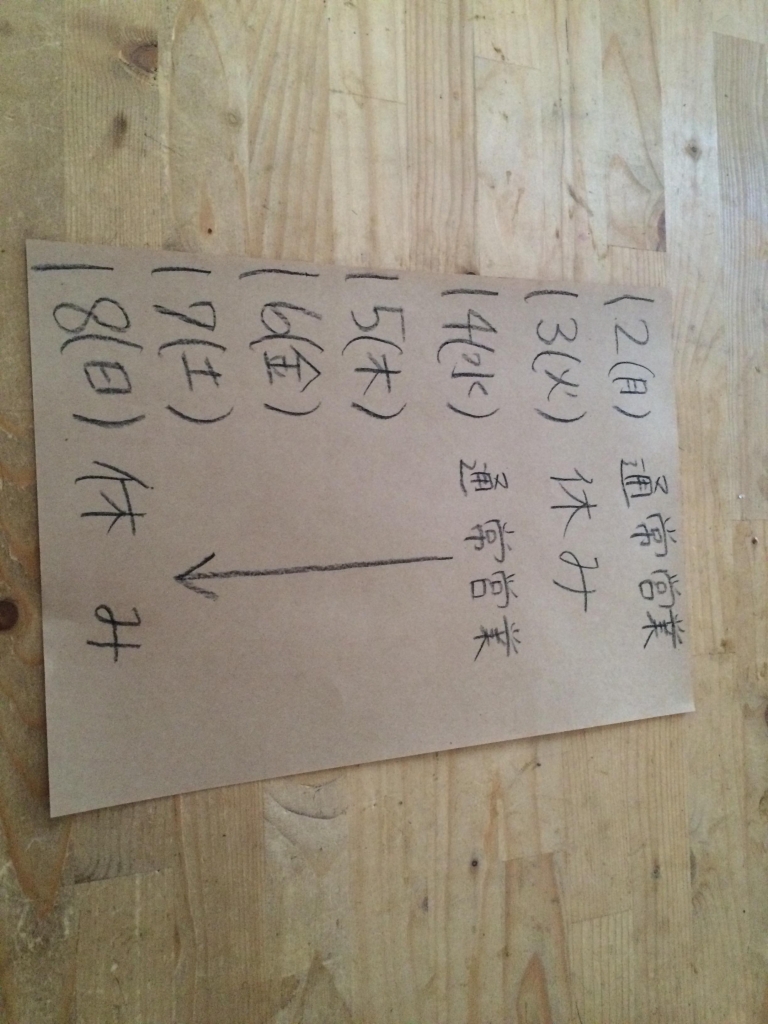 12(月) 通常営業
13(火) 休み
14(水) 通常営業
15(木)
16(金)
17(土)
18(日) 休み